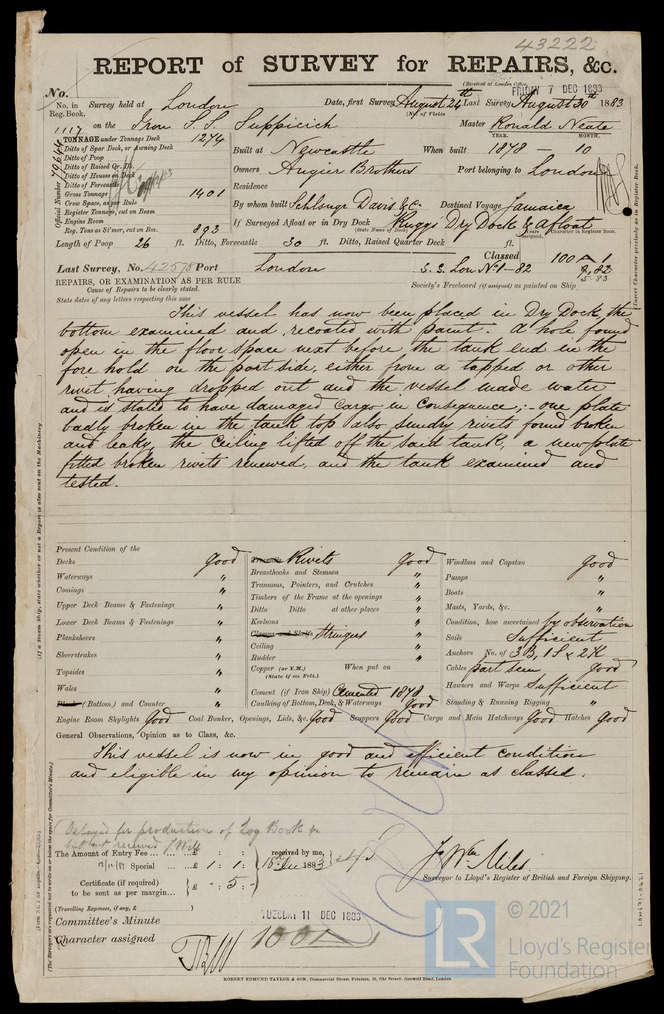 43222
REPORT of SURVEY for REPAIRS, &c.
(Received at London Office,
FRIDAY 7 DEC 1883
No.
No. in Reg. Book. Survey held at London Date, first Survey August 24th Last Survey August 30th 1883
(No. of Visits
1117 on the Iron S.S. Suppicich Master Ronald Neate
YEAR. MONTH.
TONNAGE under Tonnage Deck 1274
Ditto of Spar Deck, or Awning Deck
Ditto of Poop
Ditto of Raised Qr. Dk.
Ditto of Houses on Deck
Ditto of Forecastle
Gross Tonnage 1401
Crew Space, as per Rule
Register Tonnage, cut on Beam
Engine Room
Reg. Tons as St'mer, cut on Bm. 893
Official Number
Built at Newcastle When built 1878 — 10
Owners Augier Brothers Port belonging to London
Residence
By whom built Schlenger Davis & Co. Destined Voyage Jamaica
If Surveyed Afloat or in Dry Dock Rugg's Dry Dock & Afloat
(State Name of Dock)
Length of Poop 26 ft. Ditto, Forecastle 30 ft. Ditto, Raised Quarter Deck ft.
Years Assigned. Character in Register Book.
(Insert Character precisely as in Register Book.
Classed 100 A 1
Last Survey, No. 42578 Port London S.S. Lon No 1-82 2,82
5-83
REPAIRS, OR EXAMINATION AS PER RULE Society's Freeboard (if assigned) as painted on Ship
Cause of Repairs to be clearly stated.
State dates of any letters respecting this case
This vessel has now been placed in Dry Dock, the
bottom examined and recoated with paint. A hole found
open in the floor space next before the tank end in the
fore hold on the port side, either from a tapped or other
rivet having dropped out and the vessel made water
and is stated to have damaged Cargo in Consequence;- one plate
badly broken in the tank top also sundry rivets found broken
and leaky, the Ceiling lifted off the said tank, a new plate
fitted broken rivets renewed, and the tank examined and
tested.
(If a Steam Ship, state whether or not a Report is also sent on the Machinery.
Present Condition of the
Decks Good
Waterways "
Comings "
Upper Deck Beams & Fastenings "
Lower Deck Beams & Fastenings "
Planksheers "
Sheerstrakes "
Topsides "
Wales "
(Bottom) and Counter "
Rivets Good
Breasthooks and Stemson "
Transoms, Pointers, and Crutches "
Timbers of the Frame at the openings "
Ditto Ditto at other places "
Keelsons "
Stringers "
Ceiling "
Rudder "
Copper (or Y.M.) When put on
(State if on Felt.)
Cement (if Iron Ship) Cemented 1878
Caulking of Bottom, Deck, & Waterways Good
Windlass and Capstan Good
Pumps "
Boats "
Masts, Yards, &c. "
Condition, how ascertained by observation
Sails Sufficient
Anchors No. of 3B, 1S & 2K
Cables part seen Good
Hawsers and Warps Sufficient
Standing & Running Rigging "
Engine Room Skylights Good Coal Bunker, Openings, Lids, &c. Good Scuppers Good Cargo and Main Hatchways Good Hatches Good
General Observations, Opinion as to Class, &c.
This vessel is now in good and efficient condition
and eligible in my opinion to remain as classed.
Delayed for production of Log Book
but not received
The Amount of Entry Fee ... ... £ : :
Special ... £ 1 : 1 :
received by me,
18th Dec 1883
Certificate (if required) £ " : 5 :
to be sent as per margin...
(Travelling Expenses, if any, £ )
Jas Wm Miles
Surveyor to Lloyd's Register of British and Foreign Shipping.
Committee's Minute TUESDAY 11 DEC 1883
Character assigned 100 A 1
(The Surveyors are requested not to write on or below the space for Committee's Minute.)
ROBERT EDMUND TAYLOR, & SON, Commercial Steam Printers, 19, Old Street, Goswell Road, London.
LR
© 2021
Lloyd's Register
Foundation